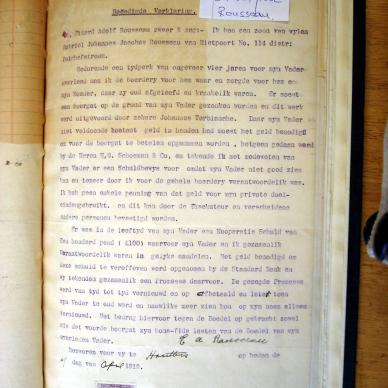 Rousseau.
Beedigde Verklaring.
Adolf Rousseau zweer &
Ik ben een zoon van wylen
Gabriel Johannes Jacobus Rousseau van Rietpoort No. 114 distr:
Potchefstroom.
Gedurende een tydperk van ongeveer vier jaren voor myn Vader
overleed was ik de boerdery voor hem waar en zorgde voor hem en
myn Moeder, daar zy oud afgeleefd en krankelik waren. Er moest
een boorgat op de grond van myn Vader gezonken worden en dit werk
werd uitgevoerd door zekere Johannes
Daar myn Vader
niet voldoende kontant geld in handen had moest het geld benoodigd
om voor de boorgat te betalen opgenomen worden, hetgeen gedaan werd
by de Heren
Schoeman & Co, en tekende ik met medeweten van
myn Vader er een Schuldbewys voor omdat myn Vader niet goed zien
kon en temeer daar ik voor de gehele boerdery verantwoordelik was.
Ik heb geen enkele penning van dat geld voor myn private doel-
einden gebruikt, en dit kan door de Eksekuteur en verscheidene
andere personen bevestigd worden.
Er was in de leeftyd van myn Vader een Kooperatie Schuld van
Een honderd pond (£100) waarvoor myn Vader en ik gezamenlik
verantwoordelik waren in gelyke aandelen. Het geld benoodigd om
deze schuld te vereffenen werd opgenomen by de Standard Bank en
wy tekenden gezamenlik een Promesse daarvoor. De gezegde Promesse
werd van tyd tot tyd vernieuwd en op
afbetaald en
myn Vader te oud werd en nauwelike meer zien kon
op myn naam alleen
vernieuwd. Het bedrag hiervoor tegen de Boedel op gebracht zowel
als dat voor de boorgat zyn bona-fide lasten van de Boedel van myn
overleden Vader.
E A Rousseau
Bezworen voor my te
op heden de
dag van April 1919.